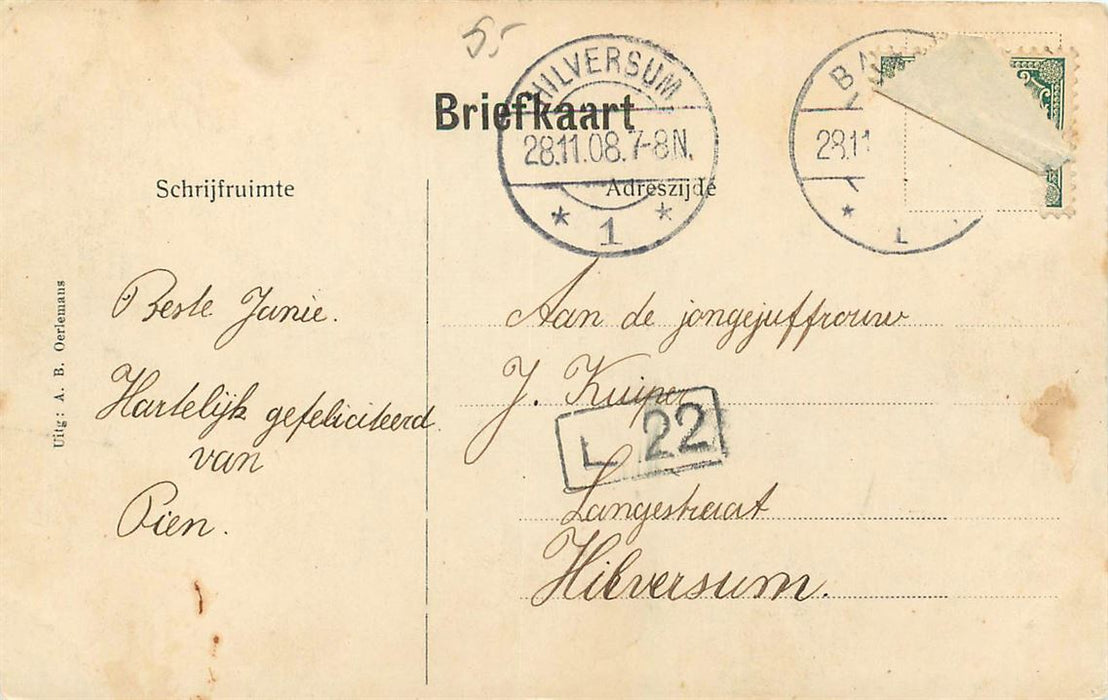 5,-
HILVERSUM
28.11.08.7-8N.
* 1 *
BA
28.11
* 1
Briefkaart
Schrijfruimte
Adreszijde
Uitg: A. B. Oerlemans
Beste Janie.
Hartelijk gefeliciteerd
van
Pien.
Aan de jongejuffrouw
J. Kuiper
L 22
Langestraat
Hilversum.